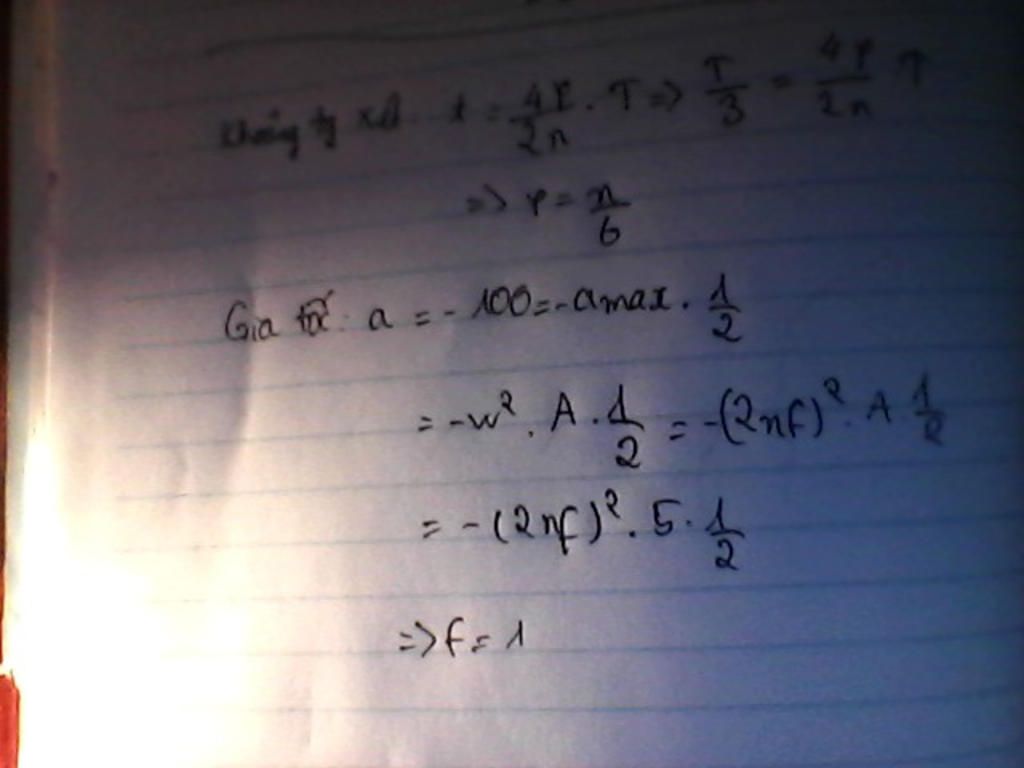 t = 4φ/2π . T => T/3 = 4φ/2π T
=> φ = π/6
Gia tốc a = - 100 = - amax . 1/2
= - w² . A . 1/2 = - (2πf)² . A . 1/2
= - (2πf)² . 5 . 1/2
=> f = 1